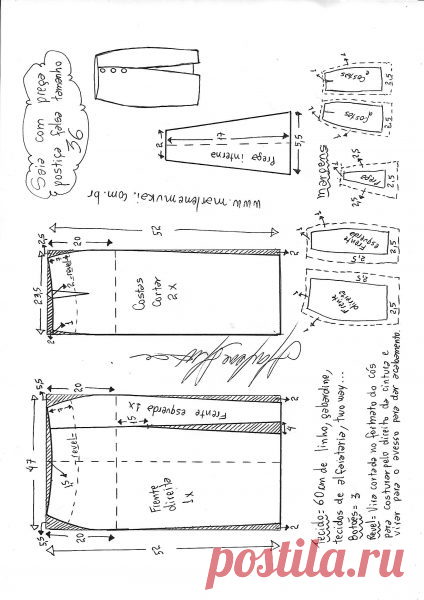 Saia com prega
postiça falsa tamanho
36
2
17
5,5
Prega interna
www.marlenemukai.com.br
2
Costas
2,5
2
Costas
2,5
margens
2,5
Prega
2,5
Frente
esquerda
2,5
2,5
Frente
direita
2,5
2,5
52
20
2,5
23,5
7
revel
2
Costas
cortar
2x
2
5,5
20
7
Frente esquerda 1x
15
2
4
47
revel
15
Frente
direita
1x
5,5
20
2
52
Tecido= 60cm de linho, gabardine,
tecidos de alfaiataria, two way...
Botões= 3
Revel= Vira cortada no formato do cós
para costurar pelo direito da cintura e
virar para o avesso para dar acabamento.
postila.ru